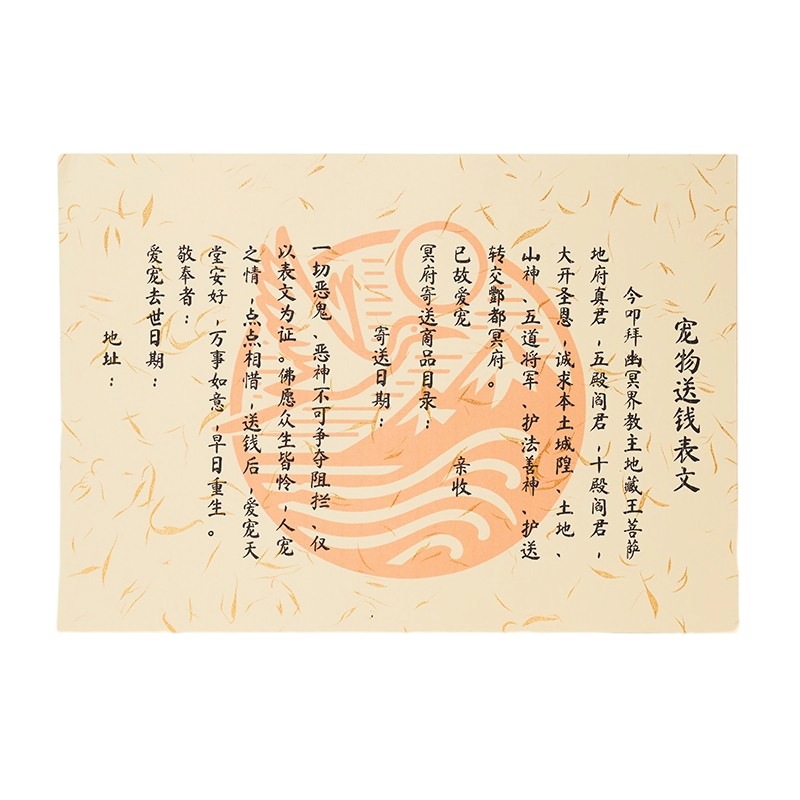 宠物送钱表文
今叩拜幽冥界教主地藏王菩萨
地府真君，五殿阎君，十殿阎君，
大开圣恩，诚求本土城隍、土地、
山神、五道将军、护法善神、护送
转交酆都冥府。
已故爱宠 亲收
冥府寄送商品目录：
寄送日期：
一切恶鬼、恶神不可争夺阻拦、仅
以表文为证。佛愿众生皆怜，人宠
之情，点点相惜，送钱后，爱宠天
堂安好，万事如意，早日重生。
敬奉者：
爱宠去世日期：
地址：